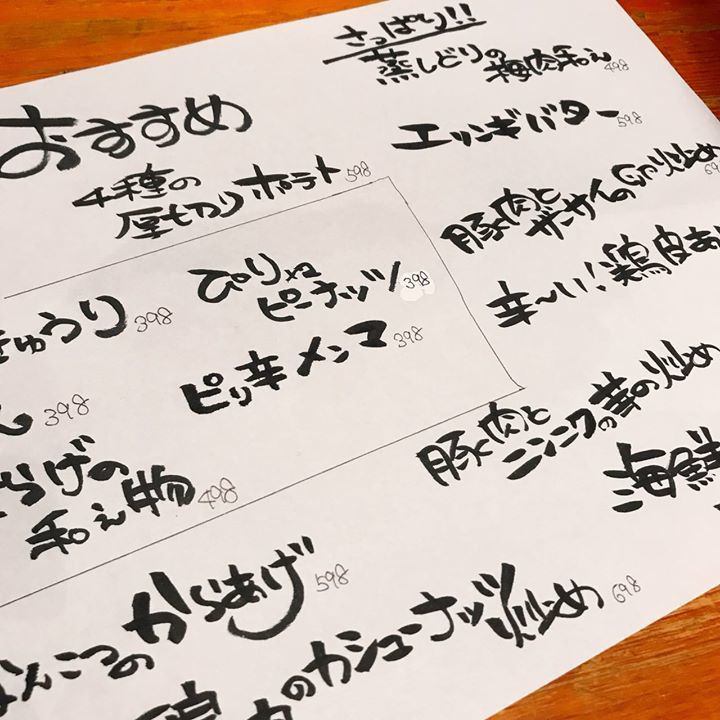 さっぱり!!
蒸しどりの梅肉和え
498
おすすめ
エリンギバター 598
4種の
厚切りポテト 598
豚肉と
ザーサイの炒め
ぴりマヨ
ピーナッツ 398
辛〜い!鶏皮
きゅうり 398
ピリ辛メンマ 398
398
豚肉と
ニンニクの芽の炒め
らげの
和え物 498
海鮮
なんこつのからあげ 598
肉のカシューナッツ炒め 698